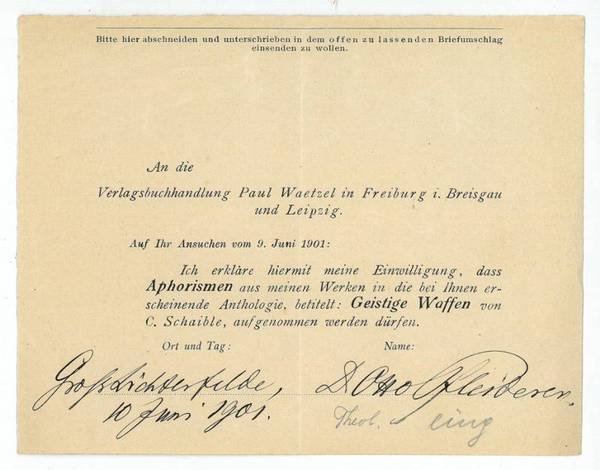 Bitte hier abschneiden und unterschrieben in dem offen zu lassenden Briefumschlag
einsenden zu wollen.
An die
Verlagsbuchhandlung Paul Waetzel in Freiburg i. Breisgau
und Leipzig.
Auf Ihr Ansuchen vom 9. Juni 1901:
Ich erkläre hiermit meine Einwilligung, dass
Aphorismen aus meinen Werken in die bei Ihnen er-
scheinende Anthologie, betitelt: Geistige Waffen von
C. Schaible, aufgenommen werden dürfen.
Ort und Tag: Name:
Gross Lichterfelde, D. Otto Pfleiderer.
10 Juni 1901. Theol.